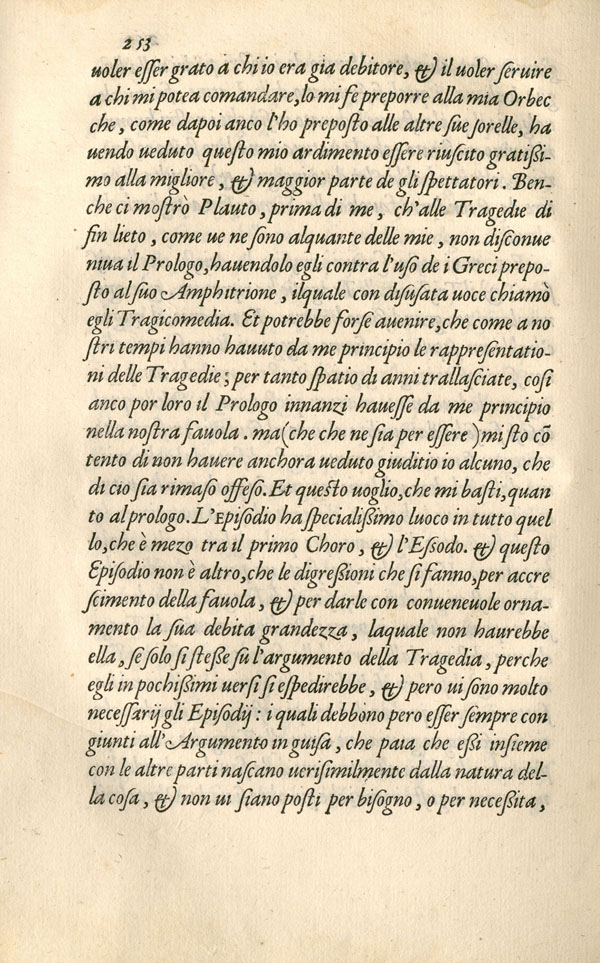 253
uoler esser grato a chi io era gia debitore, & il uoler seruire
a chi mi potea comandare, lo mi fe preporre alla mia Orbec
che, come dapoi anco l'ho preposto alle altre sue sorelle, ha
uendo ueduto questo mio ardimento essere riuscito gratißi-
mo alla migliore, & maggior parte de gli spettatori. Ben-
che ci mostrò Plauto, prima di me, ch'alle Tragedie di
fin lieto, come ue ne sono alquante delle mie, non disconue
niua il Prologo, hauendolo egli contra l'uso de i Greci prepo-
sto al suo Amphitrione, ilquale con disusata uoce chiamò
egli Tragicomedia. Et potrebbe forse auenire, che come a no
stri tempi hanno hauuto da me principio le rappresentatio-
ni delle Tragedie; per tanto spatio di anni trallasciate, cosi
anco por loro il Prologo innanzi hauesse da me principio
nella nostra fauola. ma (che che ne sia per essere) mi sto cō
tento di non hauere anchora ueduto giuditio io alcuno, che
di cio sia rimaso offeso. Et questo uoglio, che mi basti, quan
to al prologo. L'Episodio ha specialissimo luoco in tutto quel
lo, che è mezo tra il primo Choro, & l'Essodo. & questo
Episodio non è altro, che le digreßioni che si fanno, per accre
scimento della fauola, & per darle con conueneuole orna-
mento la sua debita grandezza, laquale non haurebbe
ella, se solo si steße sù l'argumento della Tragedia, perche
egli in pochißimi uersi si espedirebbe, & pero ui sono molto
necessarij gli Episodij: i quali debbono pero esser sempre con
giunti all'Argumento in guisa, che paia che eßi insieme
con le altre parti nascano uerisimilmente dalla natura del-
la cosa, & non ui siano posti per bisogno, o per neceßita,